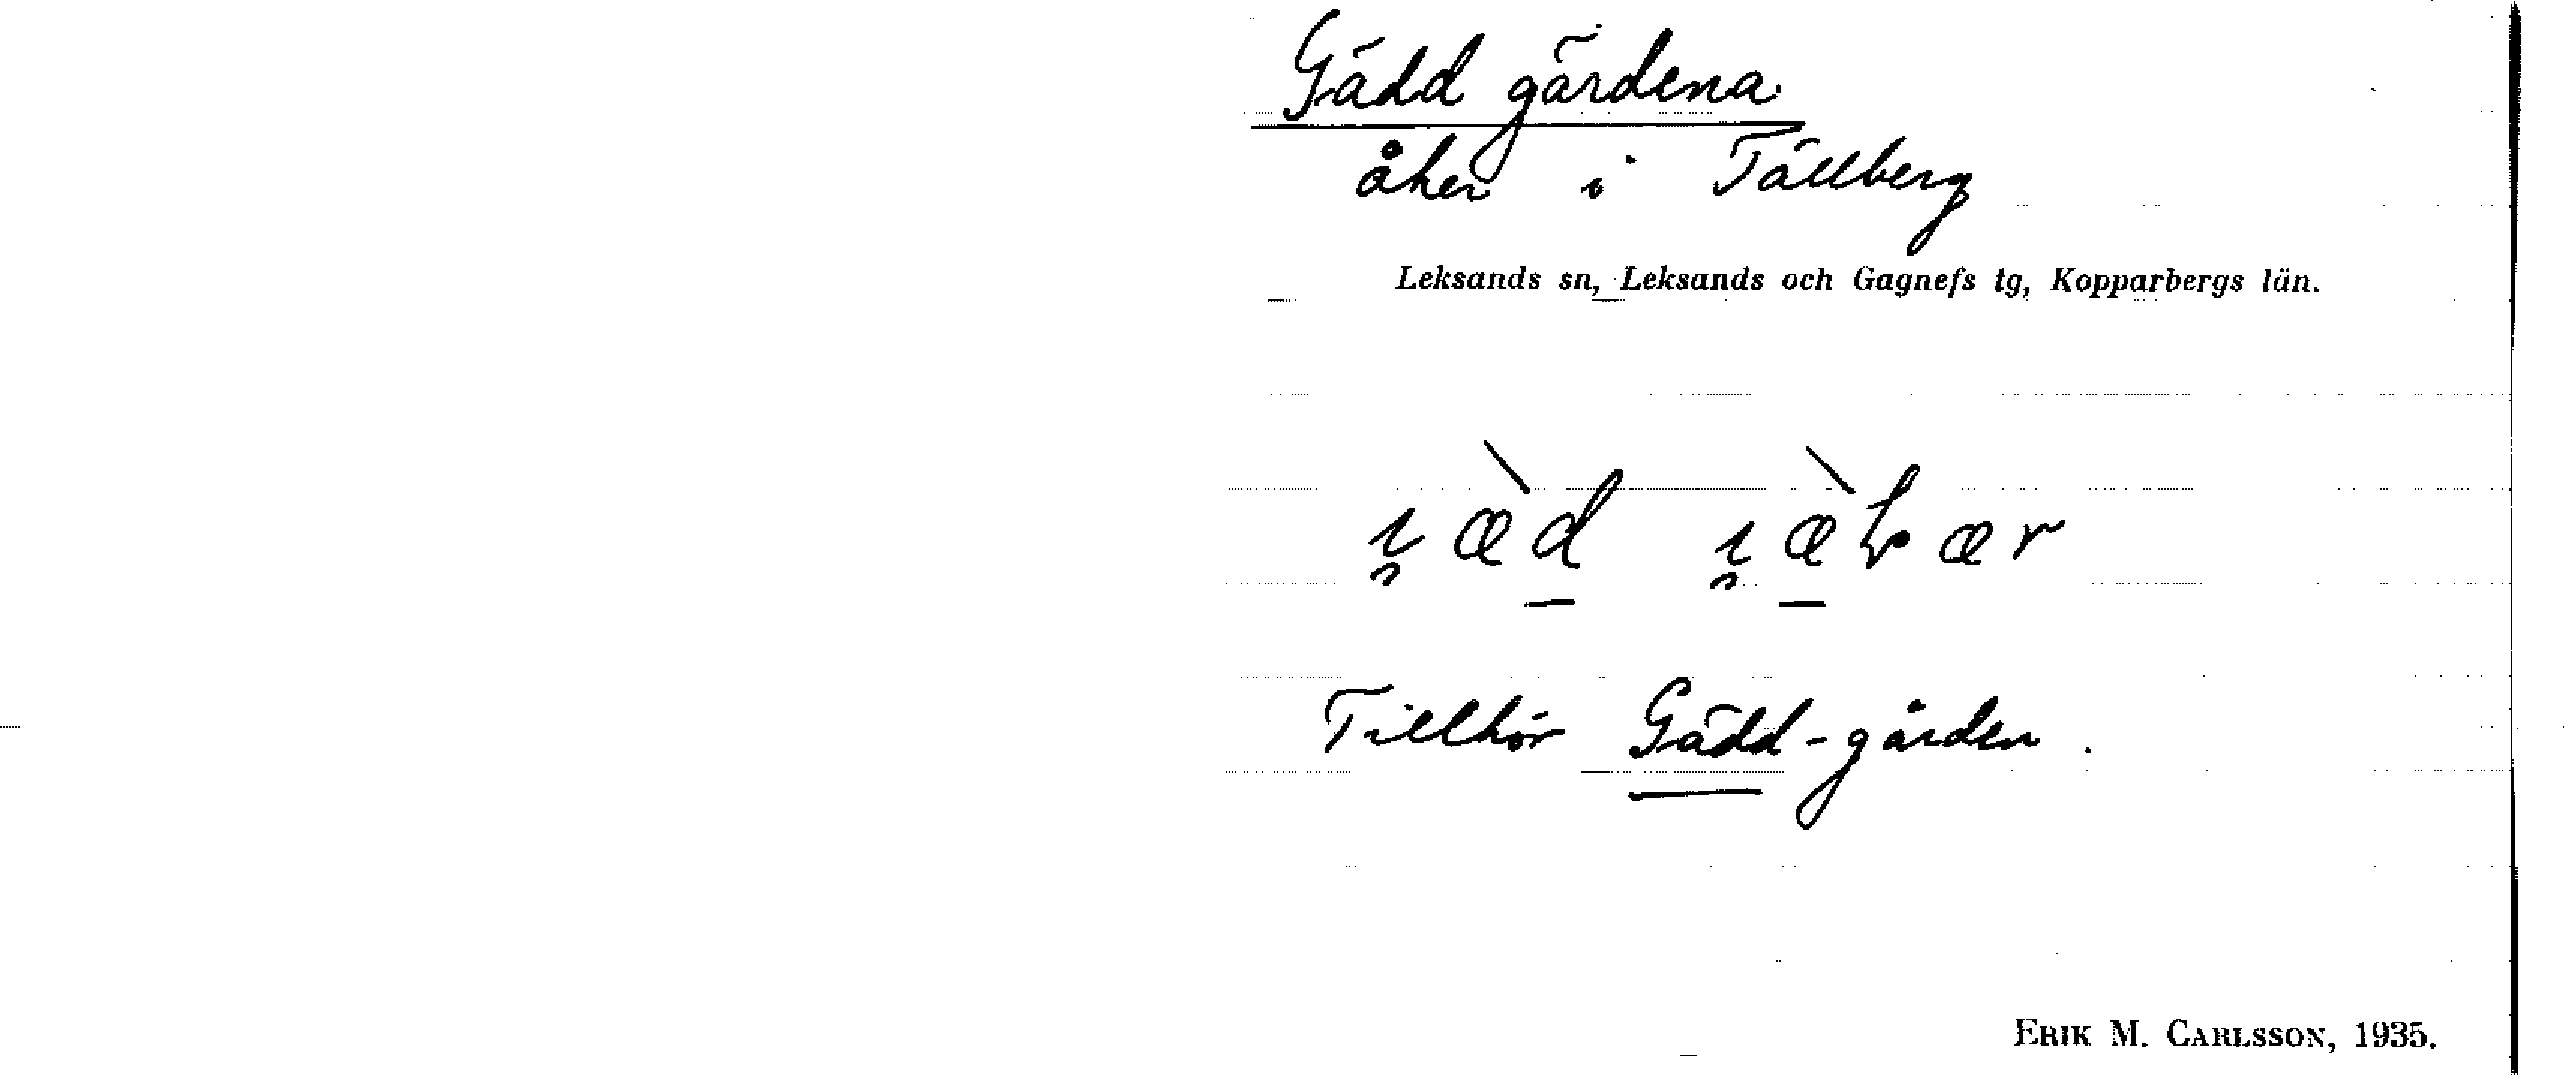 Gädd gärdena
åker i Tällberg
Leksands sn, Leksands och Gagnefs tg, Kopparbergs län.
Tillhör Gädd-gården.
ERIK M. CARLSSON, 1935.